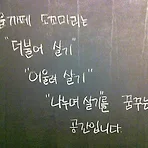 도꼬마리는
"더불어 살기"
"어울려 살기"
"나누며 살기"를 꿈꾸는
공간입니다.